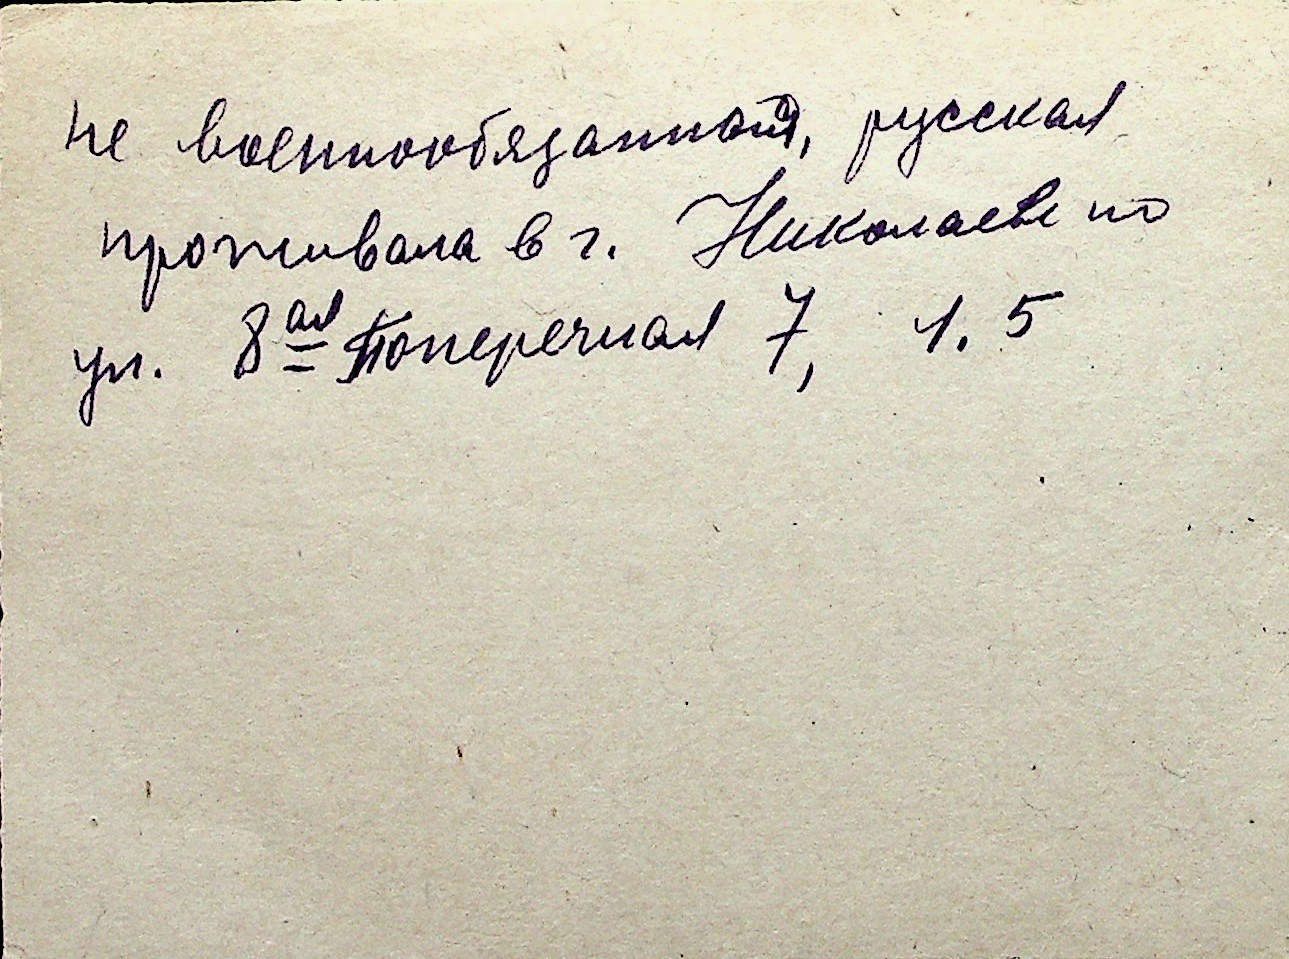 не военнообязанная, русская
проживала в г. Николаеве по
ул. 8ая Поперечная 7, 1. 5